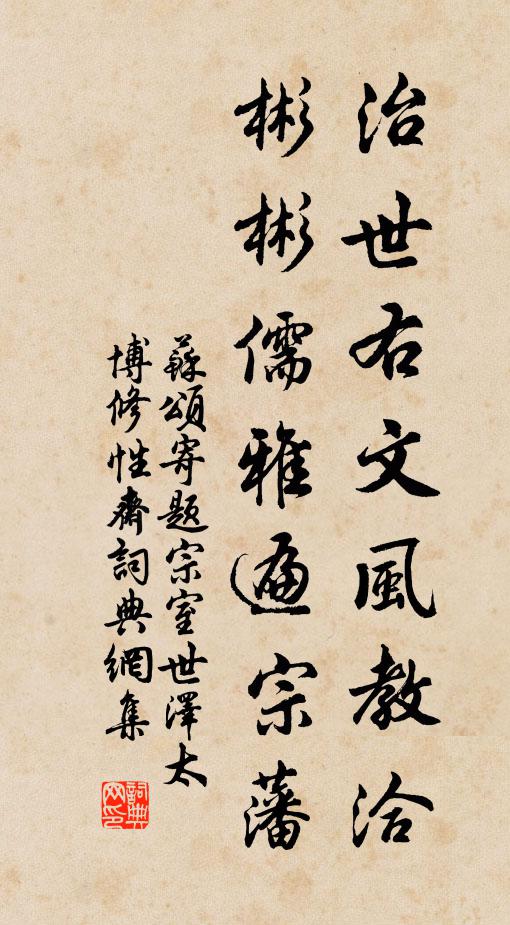 治世右文風教洽
彬彬儒雅遍宗藩
蘇頌寄題宗室世澤太
博修性齋詞典網集
詞典
网印